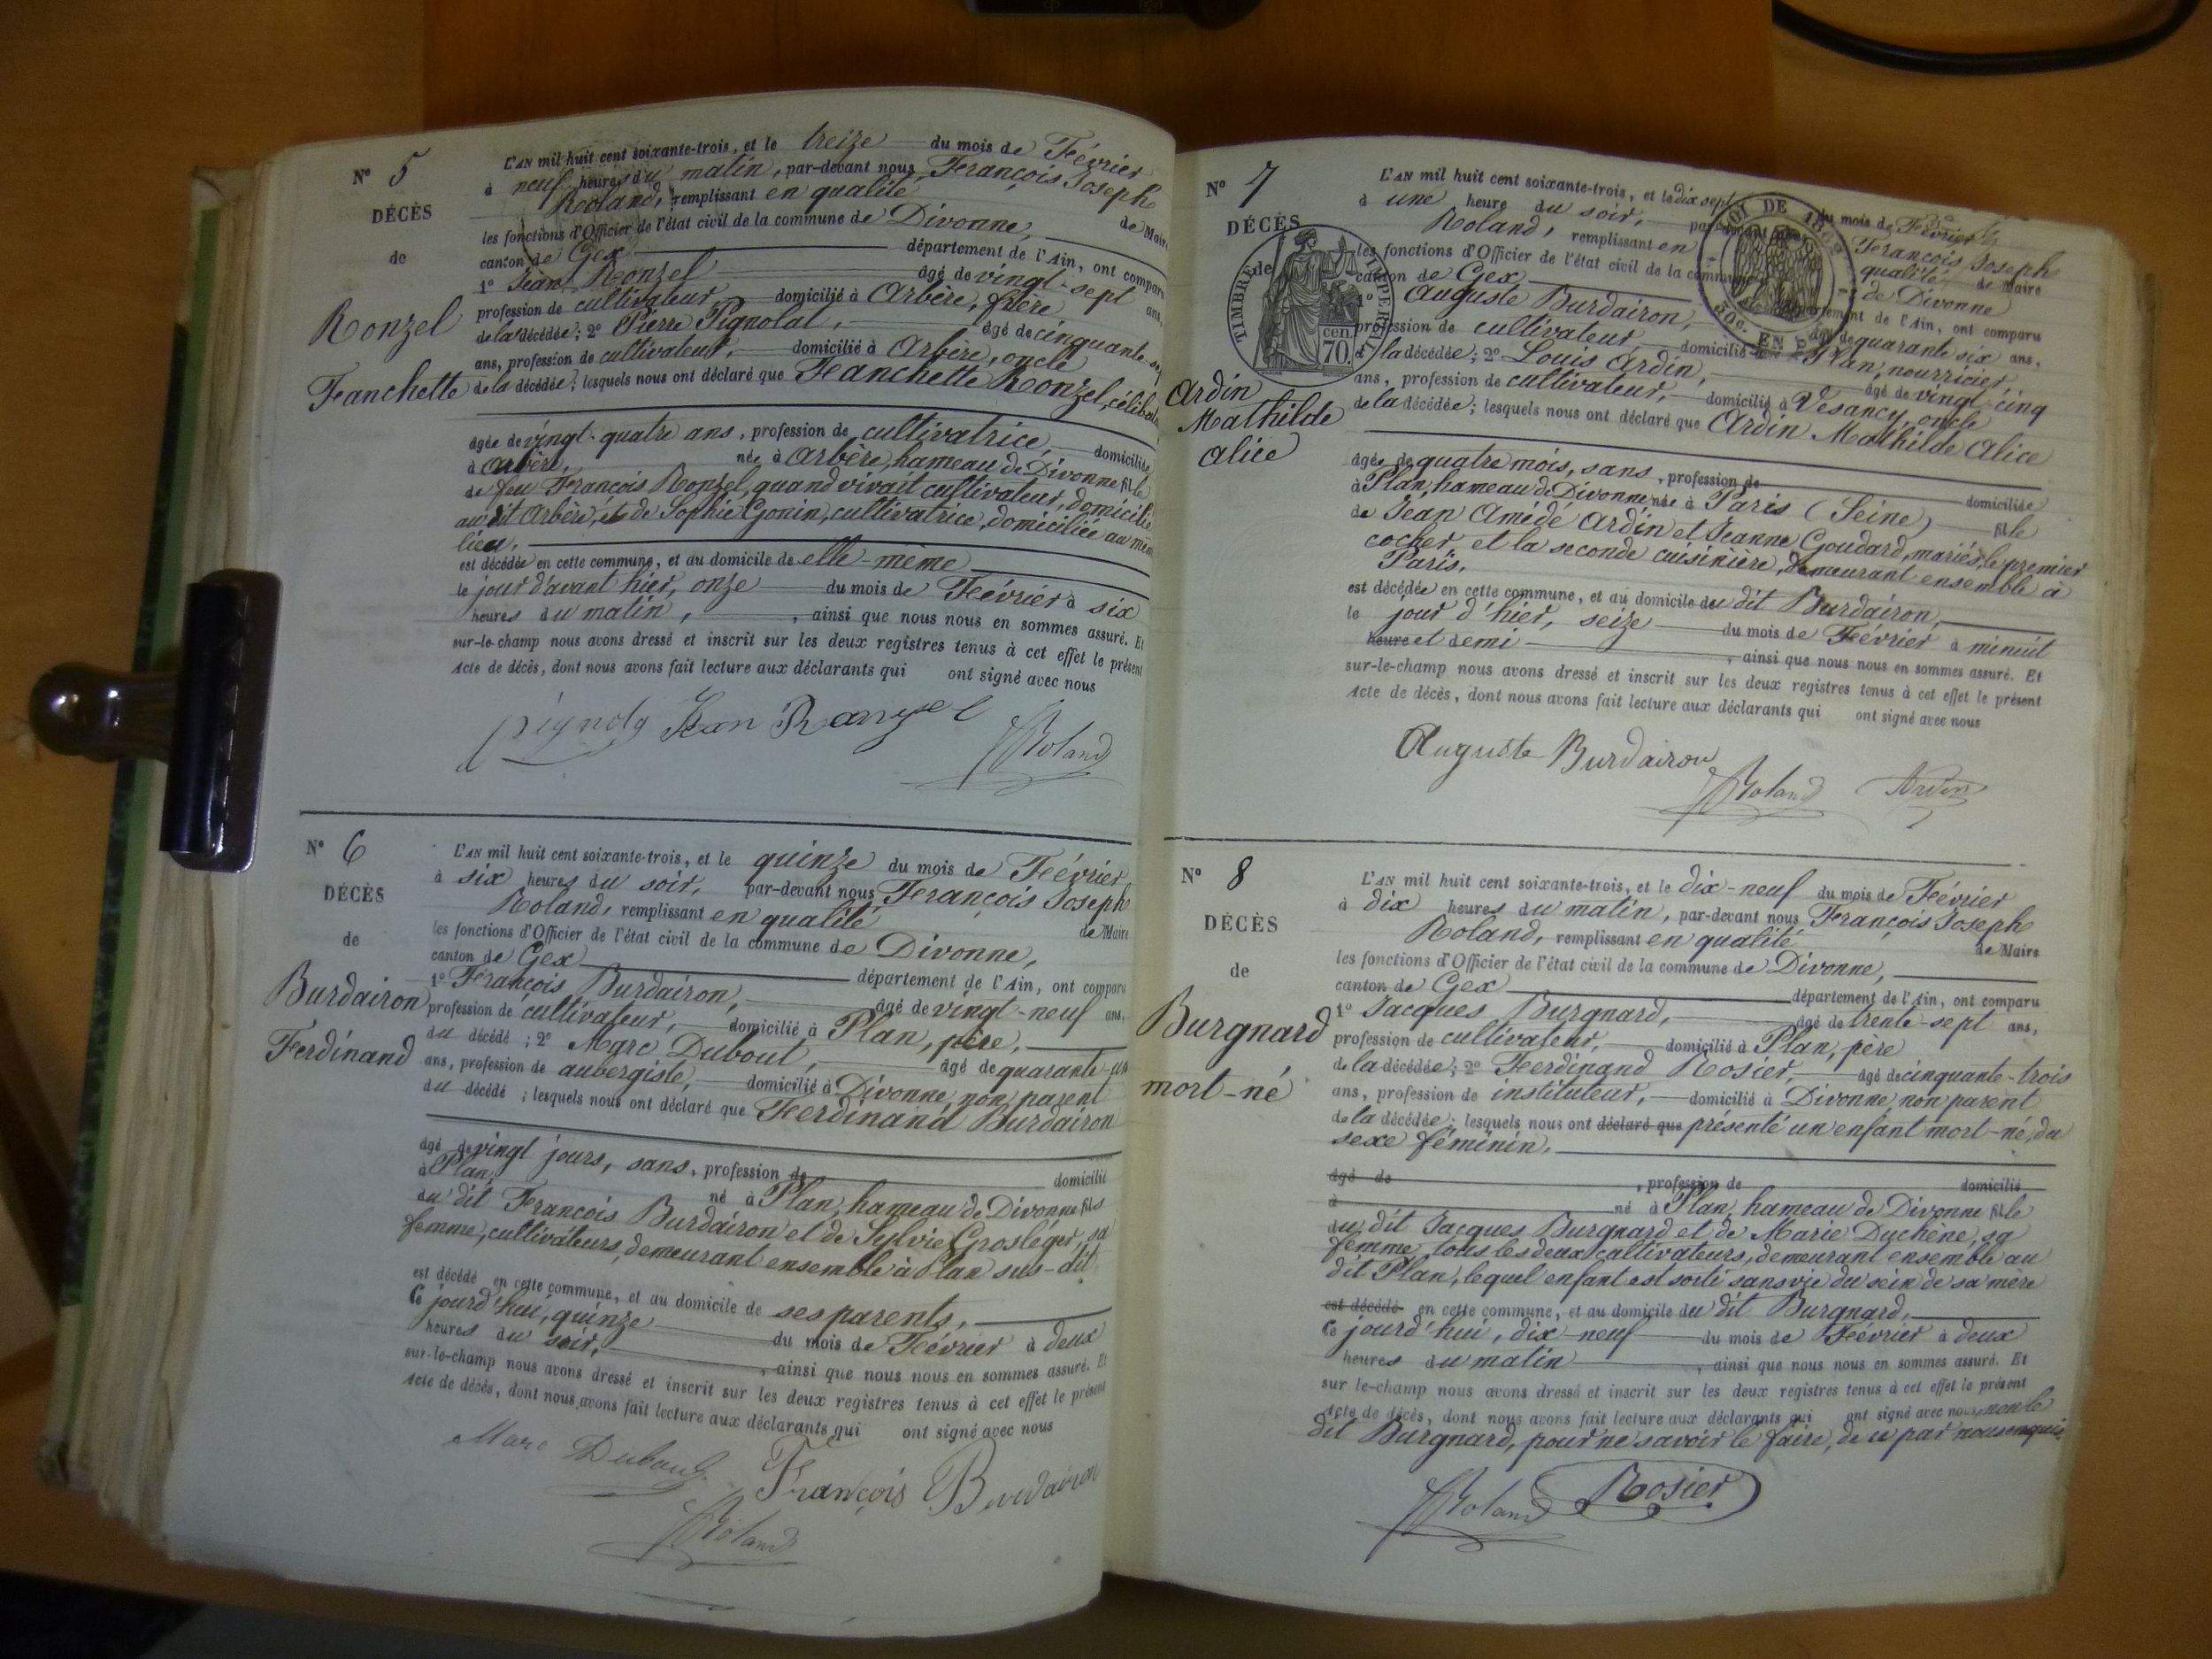 N° 5
DÉCÈS
de
Ronzel
Fanchette
L'AN mil huit cent soixante-trois, et le treize du mois de Février
à neuf heures du matin, par-devant nous François Joseph
Roland, remplissant en qualité de Maire
les fonctions d'Officier de l'état civil de la commune de Divonne,
canton de Gex département de l'Ain, ont comparu
1° Jean Ronzel âgé de vingt-sept ans,
profession de cultivateur, domicilié à Arbère, frère
de la décédée; 2° Pierre Pignolat, âgé de cinquante-
ans, profession de cultivateur, domicilié à Arbère, oncle
de la décédée; lesquels nous ont déclaré que Fanchette Ronzel,
âgée de vingt-quatre ans, profession de cultivatrice, domiciliée
à Arbère, née à Arbère, hameau de Divonne fille
de feu François Ronzel, quand vivait cultivateur, domicilié
au dit Arbère, et de Sophie Gonin, cultivatrice, domiciliée au même
lieu.
est décédée en cette commune, et au domicile de elle-même
le jour d'avant hier, onze du mois de Février à six
heures du matin, , ainsi que nous nous en sommes assuré. Et
sur-le-champ nous avons dressé et inscrit sur les deux registres tenus à cet effet le présent
Acte de décès, dont nous avons fait lecture aux déclarants qui ont signé avec nous
Jean Roland
N° 6
DÉCÈS
de
Burdairon
Ferdinand
L'AN mil huit cent soixante-trois, et le quinze du mois de Février
à six heures du soir, par-devant nous François Joseph
Roland, remplissant en qualité de Maire
les fonctions d'Officier de l'état civil de la commune de Divonne,
canton de Gex département de l'Ain, ont comparu
1° François Burdairon, âgé de vingt-neuf ans,
profession de cultivateur, domicilié à Plan, père,
du décédé; 2° Marc Dubout, âgé de quarante-un
ans, profession de aubergiste, domicilié à Divonne, non parent
du décédé; lesquels nous ont déclaré que Ferdinand Burdairon
âgé de vingt jours, sans, profession de domicilié
à Plan, né à Plan, hameau de Divonne fils
du dit François Burdairon et de Sylvie Grosléger, sa
femme, cultivateurs, demeurant ensemble à Plan sus-dit
est décédé en cette commune, et au domicile de ses parents,
Ce jourd'hui, quinze du mois de Février à deux
heures du soir, , ainsi que nous nous en sommes assuré. Et
sur-le-champ nous avons dressé et inscrit sur les deux registres tenus à cet effet le présent
Acte de décès, dont nous avons fait lecture aux déclarants qui ont signé avec nous
Marc Dubout François Burdairon
Roland
N° 7
DÉCÈS
de
TIMBRE IMPERIAL
70 cen
Ardin
Mathilde
Alice
L'AN mil huit cent soixante-trois, et le dix sept du mois de Février
à une heure du soir, par-devant nous François Joseph
Roland, remplissant en qualité de Maire
les fonctions d'Officier de l'état civil de la commune de Divonne
canton de Gex département de l'Ain, ont comparu
1° Auguste Burdairon, âgé de quarante six ans,
profession de cultivateur, domicilié à Plan, nourricier,
de la décédée; 2° Louis Ardin, âgé de vingt-cinq
ans, profession de cultivateur, domicilié à Vesancy, oncle
de la décédée; lesquels nous ont déclaré que Ardin Mathilde Alice
âgée de quatre mois, sans, profession de domiciliée
à Plan, hameau de Divonne née à Paris (Seine) fille
de Jean Amédé Ardin et Jeanne Goudard, mariés, le premier
cocher et la seconde cuisinière, demeurant ensemble à
Paris.
est décédée en cette commune, et au domicile du dit Burdairon,
le jour d'hier, seize du mois de Février à minuit
heure et demi , ainsi que nous nous en sommes assuré. Et
sur-le-champ nous avons dressé et inscrit sur les deux registres tenus à cet effet le présent
Acte de décès, dont nous avons fait lecture aux déclarants qui ont signé avec nous
Auguste Burdairon
Roland Ardin
N° 8
DÉCÈS
de
Burgnard
mort-né
L'AN mil huit cent soixante-trois, et le dix-neuf du mois de Février
à dix heures du matin, par-devant nous François Joseph
Roland, remplissant en qualité de Maire
les fonctions d'Officier de l'état civil de la commune de Divonne,
canton de Gex département de l'Ain, ont comparu
1° Jacques Burgnard, âgé de trente-sept ans,
profession de cultivateur, domicilié à Plan, père
de la décédée; 2° Ferdinand Rosier, âgé de cinquante-trois
ans, profession de instituteur, domicilié à Divonne, non parent
de la décédée; lesquels nous ont déclaré que présenté un enfant mort-né, du
sexe féminin.
âgé de , profession de domicilié
à né à Plan, hameau de Divonne fille
du dit Jacques Burgnard et de Marie Duchêne, sa
femme, tous les deux cultivateurs, demeurant ensemble au
dit Plan, lequel enfant est sorti sans vie du sein de sa mère
est décédé en cette commune, et au domicile du dit Burgnard,
Ce jourd'hui, dix neuf du mois de Février à deux
heures du matin , ainsi que nous nous en sommes assuré. Et
sur le-champ nous avons dressé et inscrit sur les deux registres tenus à cet effet le présent
Acte de décès, dont nous avons fait lecture aux déclarants qui ont signé avec nous, non le
dit Burgnard, pour ne savoir le faire, de ce par nous enquis.
Roland Rosier